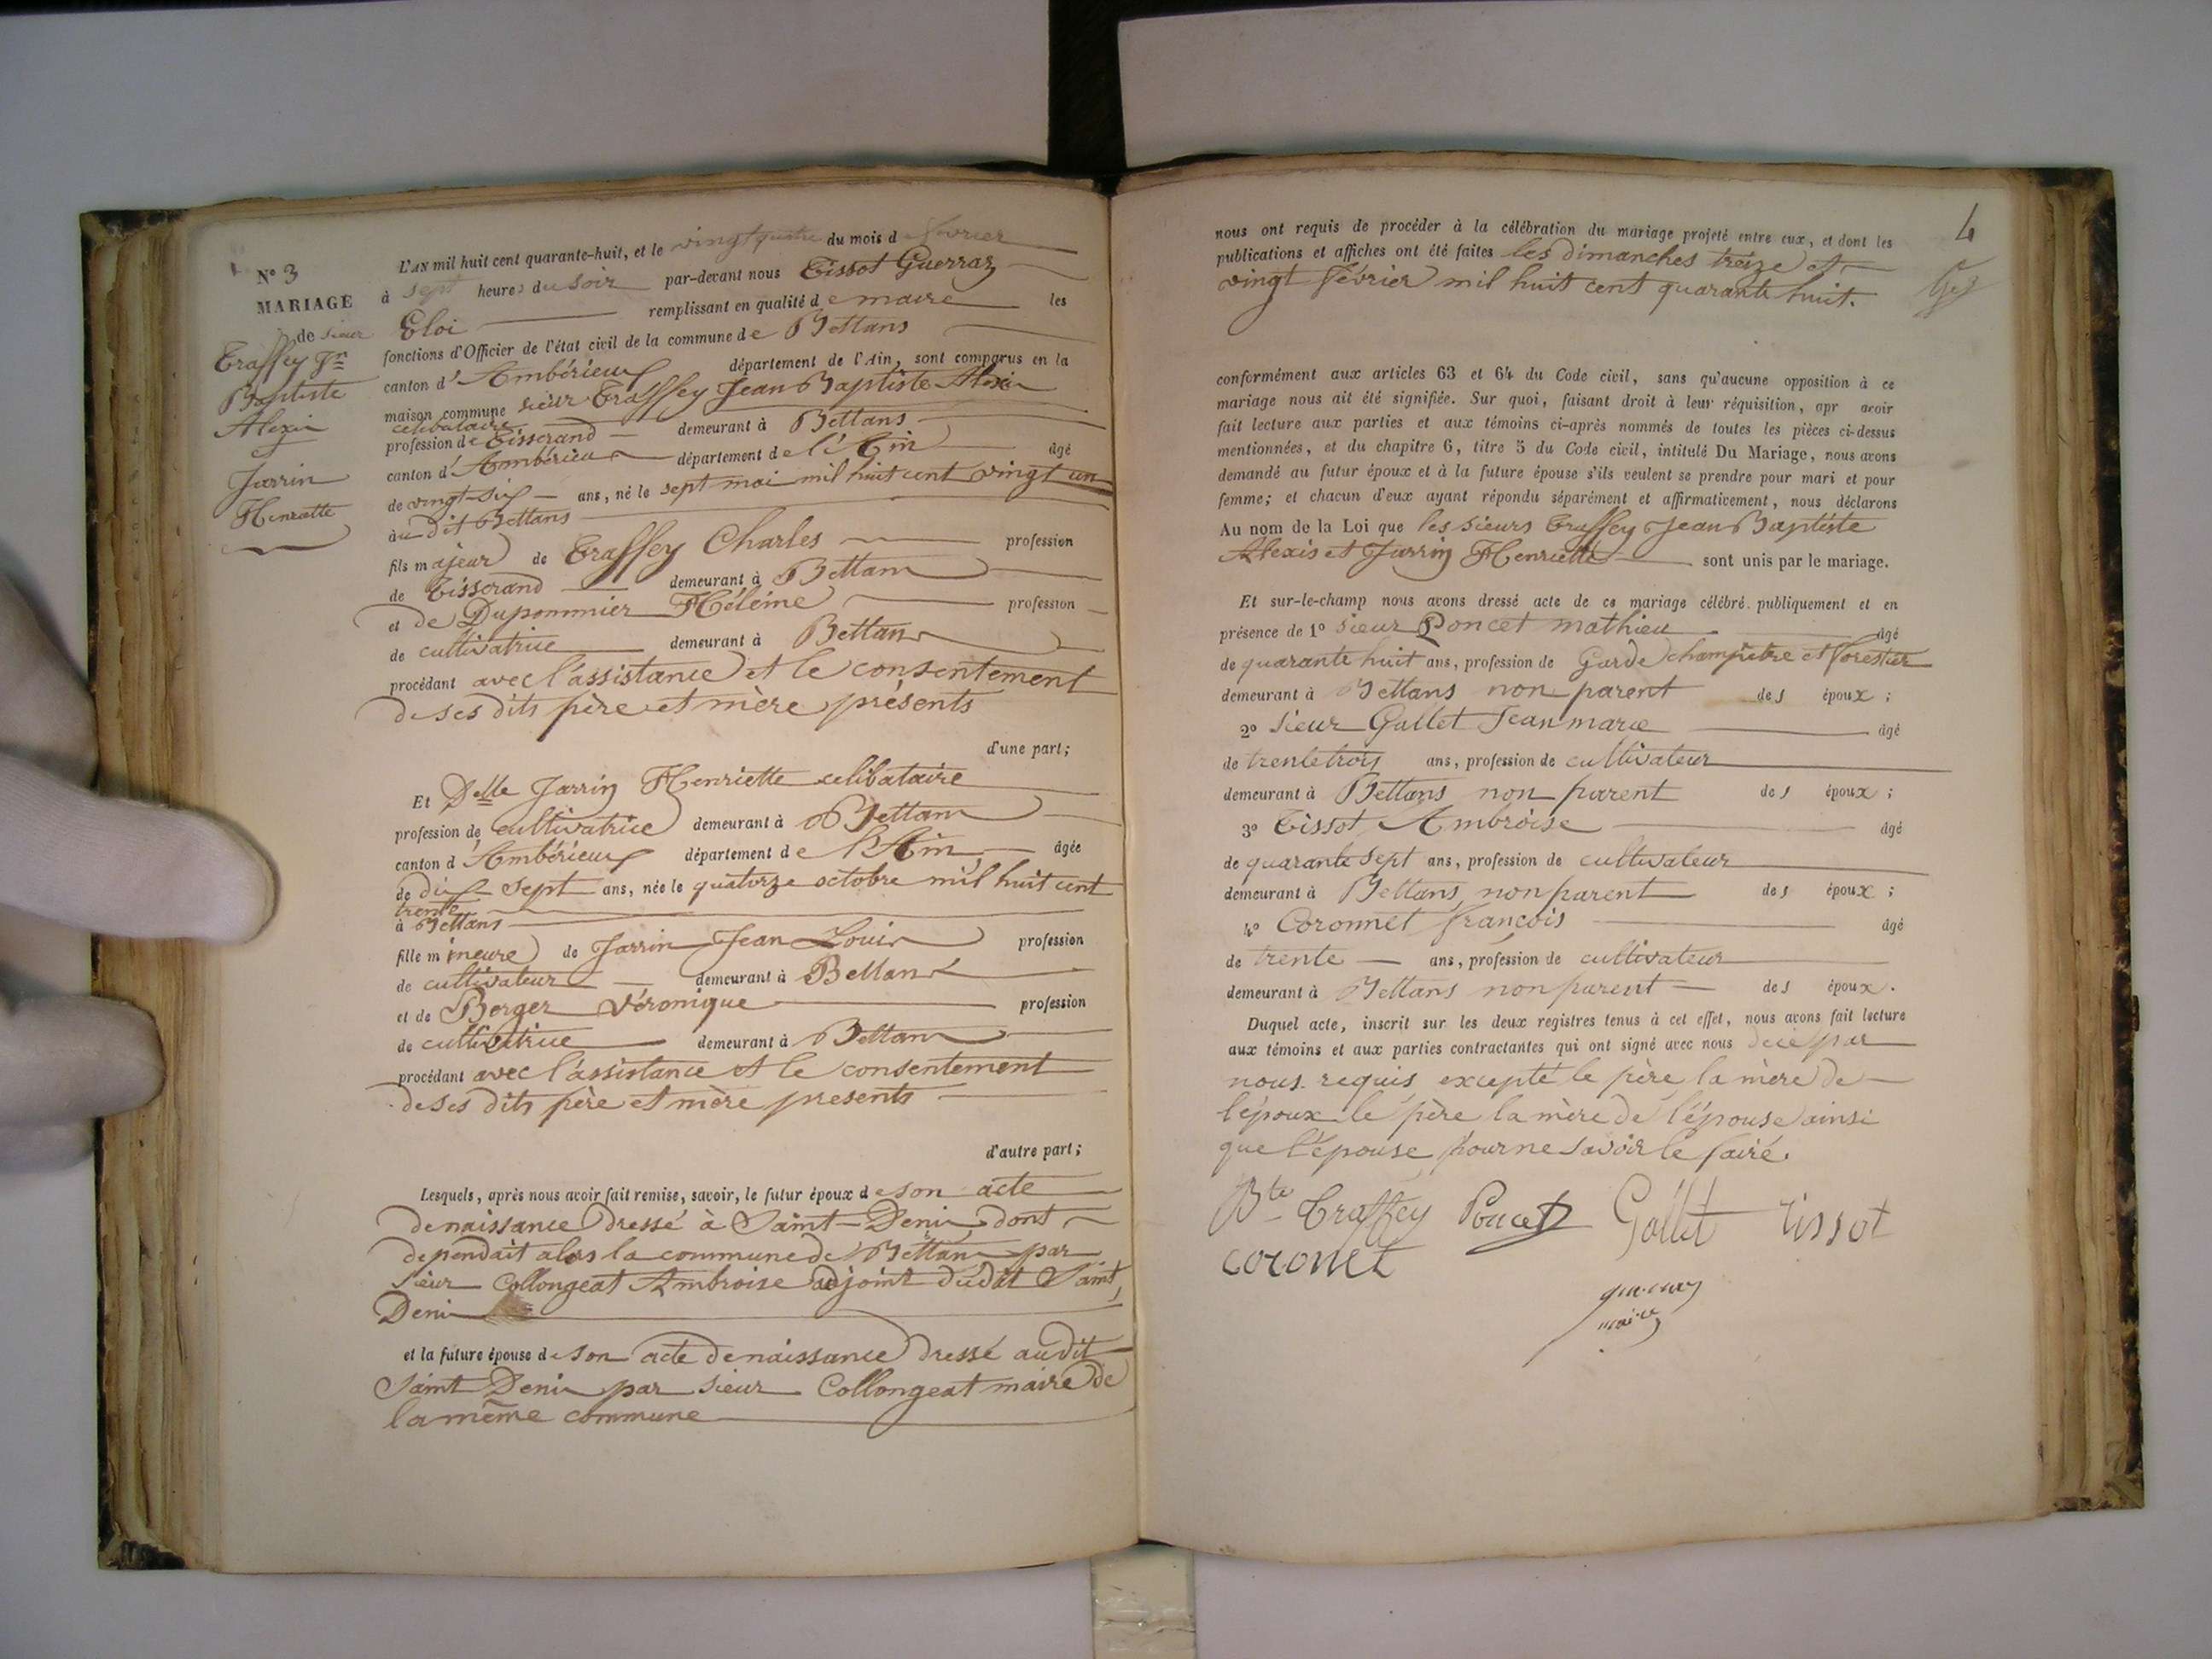 N° 3
MARIAGE
de sieur
Traffey Jn
Baptiste
Alexis
et
Jarrin
Henriette
L'AN mil huit cent quarante-huit, et le vingt quatre du mois de février
à sept heures du soir par-devant nous Tissot Guerraz
Eloi remplissant en qualité de maire les
fonctions d'Officier de l'état civil de la commune de Bettans
canton d'Ambérieux département de l'Ain, sont comparus en la
maison commune sieur Traffey Jean Baptiste Alexis
celibataire
profession de Tisserand demeurant à Bettans
canton d'Ambérieux département de l'Ain âgé
de vingt-six ans, né le sept mai mil huit cent vingt un
au dit Bettans
fils majeur de Traffey Charles profession
de Tisserand demeurant à Bettans
et de Dupommier Héléine profession
de cultivatrice demeurant à Bettans
procédant avec l'assistance et le consentement
de ses dits père et mère présents
d'une part;
Et Delle Jarrin Henriette celibataire
profession de cultivatrice demeurant à Bettans
canton d'Ambérieux département de l'Ain âgée
de dix sept ans, née le quatorze octobre mil huit cent
trente
à Bettans
fille mineure de Jarrin Jean Louis profession
de cultivateur demeurant à Bettans
et de Berger Véronique profession
de cultivatrice demeurant à Bettans
procédant avec l'assistance et le consentement
de ses dits père et mère presents
d'autre part;
Lesquels, après nous avoir fait remise, savoir, le futur époux de son acte
de naissance dressé à Saint-Denis dont
dependait alors la commune de Bettans par
sieur Collongeat Ambroise adjoint dudit Saint
Denis
et la future épouse de son acte de naissance dressé audit
Saint Denis par sieur Collongeat maire de
la même commune
4
nous ont requis de procéder à la célébration du mariage projeté entre eux, et dont les
publications et affiches ont été faites les dimanches treize et
vingt février mil huit cent quarante huit.
conformément aux articles 63 et 64 du Code civil, sans qu'aucune opposition à ce
mariage nous ait été signifiée. Sur quoi, faisant droit à leur réquisition, apr avoir
fait lecture aux parties et aux témoins ci-après nommés de toutes les pièces ci-dessus
mentionnées, et du chapitre 6, titre 5 du Code civil, intitulé Du Mariage, nous avons
demandé au futur époux et à la future épouse s'ils veulent se prendre pour mari et pour
femme; et chacun d'eux ayant répondu séparément et affirmativement, nous déclarons
Au nom de la Loi que les sieurs Traffey Jean Baptiste
Alexis et Jarrin Henriette sont unis par le mariage.
Et sur-le-champ nous avons dressé acte de ce mariage célébré publiquement et en
présence de 1° sieur Poncet mathieu âgé
de quarante huit ans, profession de Garde champêtre et forestier
demeurant à Bettans non parent des époux;
2° sieur Gallet Jean marie âgé
de trente trois ans, profession de cultivateur
demeurant à Bettans non parent des époux;
3° Tissot Ambroise âgé
de quarante sept ans, profession de cultivateur
demeurant à Bettans non parent des époux;
4° Coronnet françois âgé
de trente ans, profession de cultivateur
demeurant à Bettans non parent des époux.
Duquel acte, inscrit sur les deux registres tenus à cet effet, nous avons fait lecture
aux témoins et aux parties contractantes qui ont signé avec nous de ce par
nous requis excepté le père la mère de
l'époux le père la mère de l'épouse ainsi
que l'épouse pour ne savoir le faire.
Bte Traffey Poncet Gallet Tissot
coronet
maire